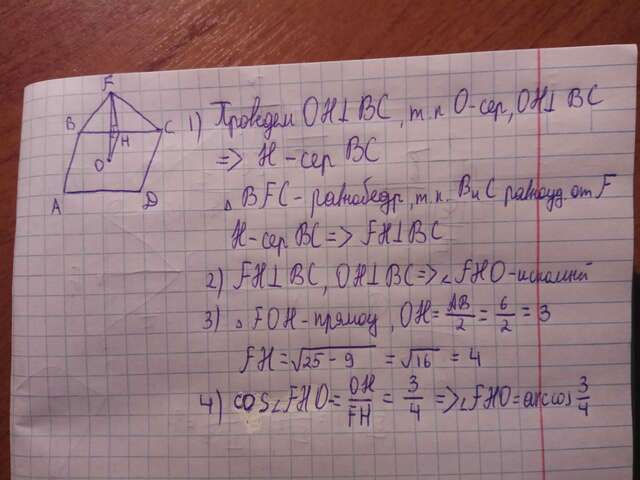 F
B
C
H
O
A
D
1) Проведем OH⊥BC, т.к O-сер, OH⊥BC
=> H-сер BC
△ BFC-равнобедр, т.к. B и C равноуд. от F
H-сер BC => FH⊥BC
2) FH⊥BC, OH⊥BC => ∠FHO-искомый
3) △ FOH-прямоу, OH = AB/2 = 6/2 = 3
FH = √25-9 = √16 = 4
4) cos∠FHO = OH/FH = 3/4 => ∠FHO = arccos 3/4